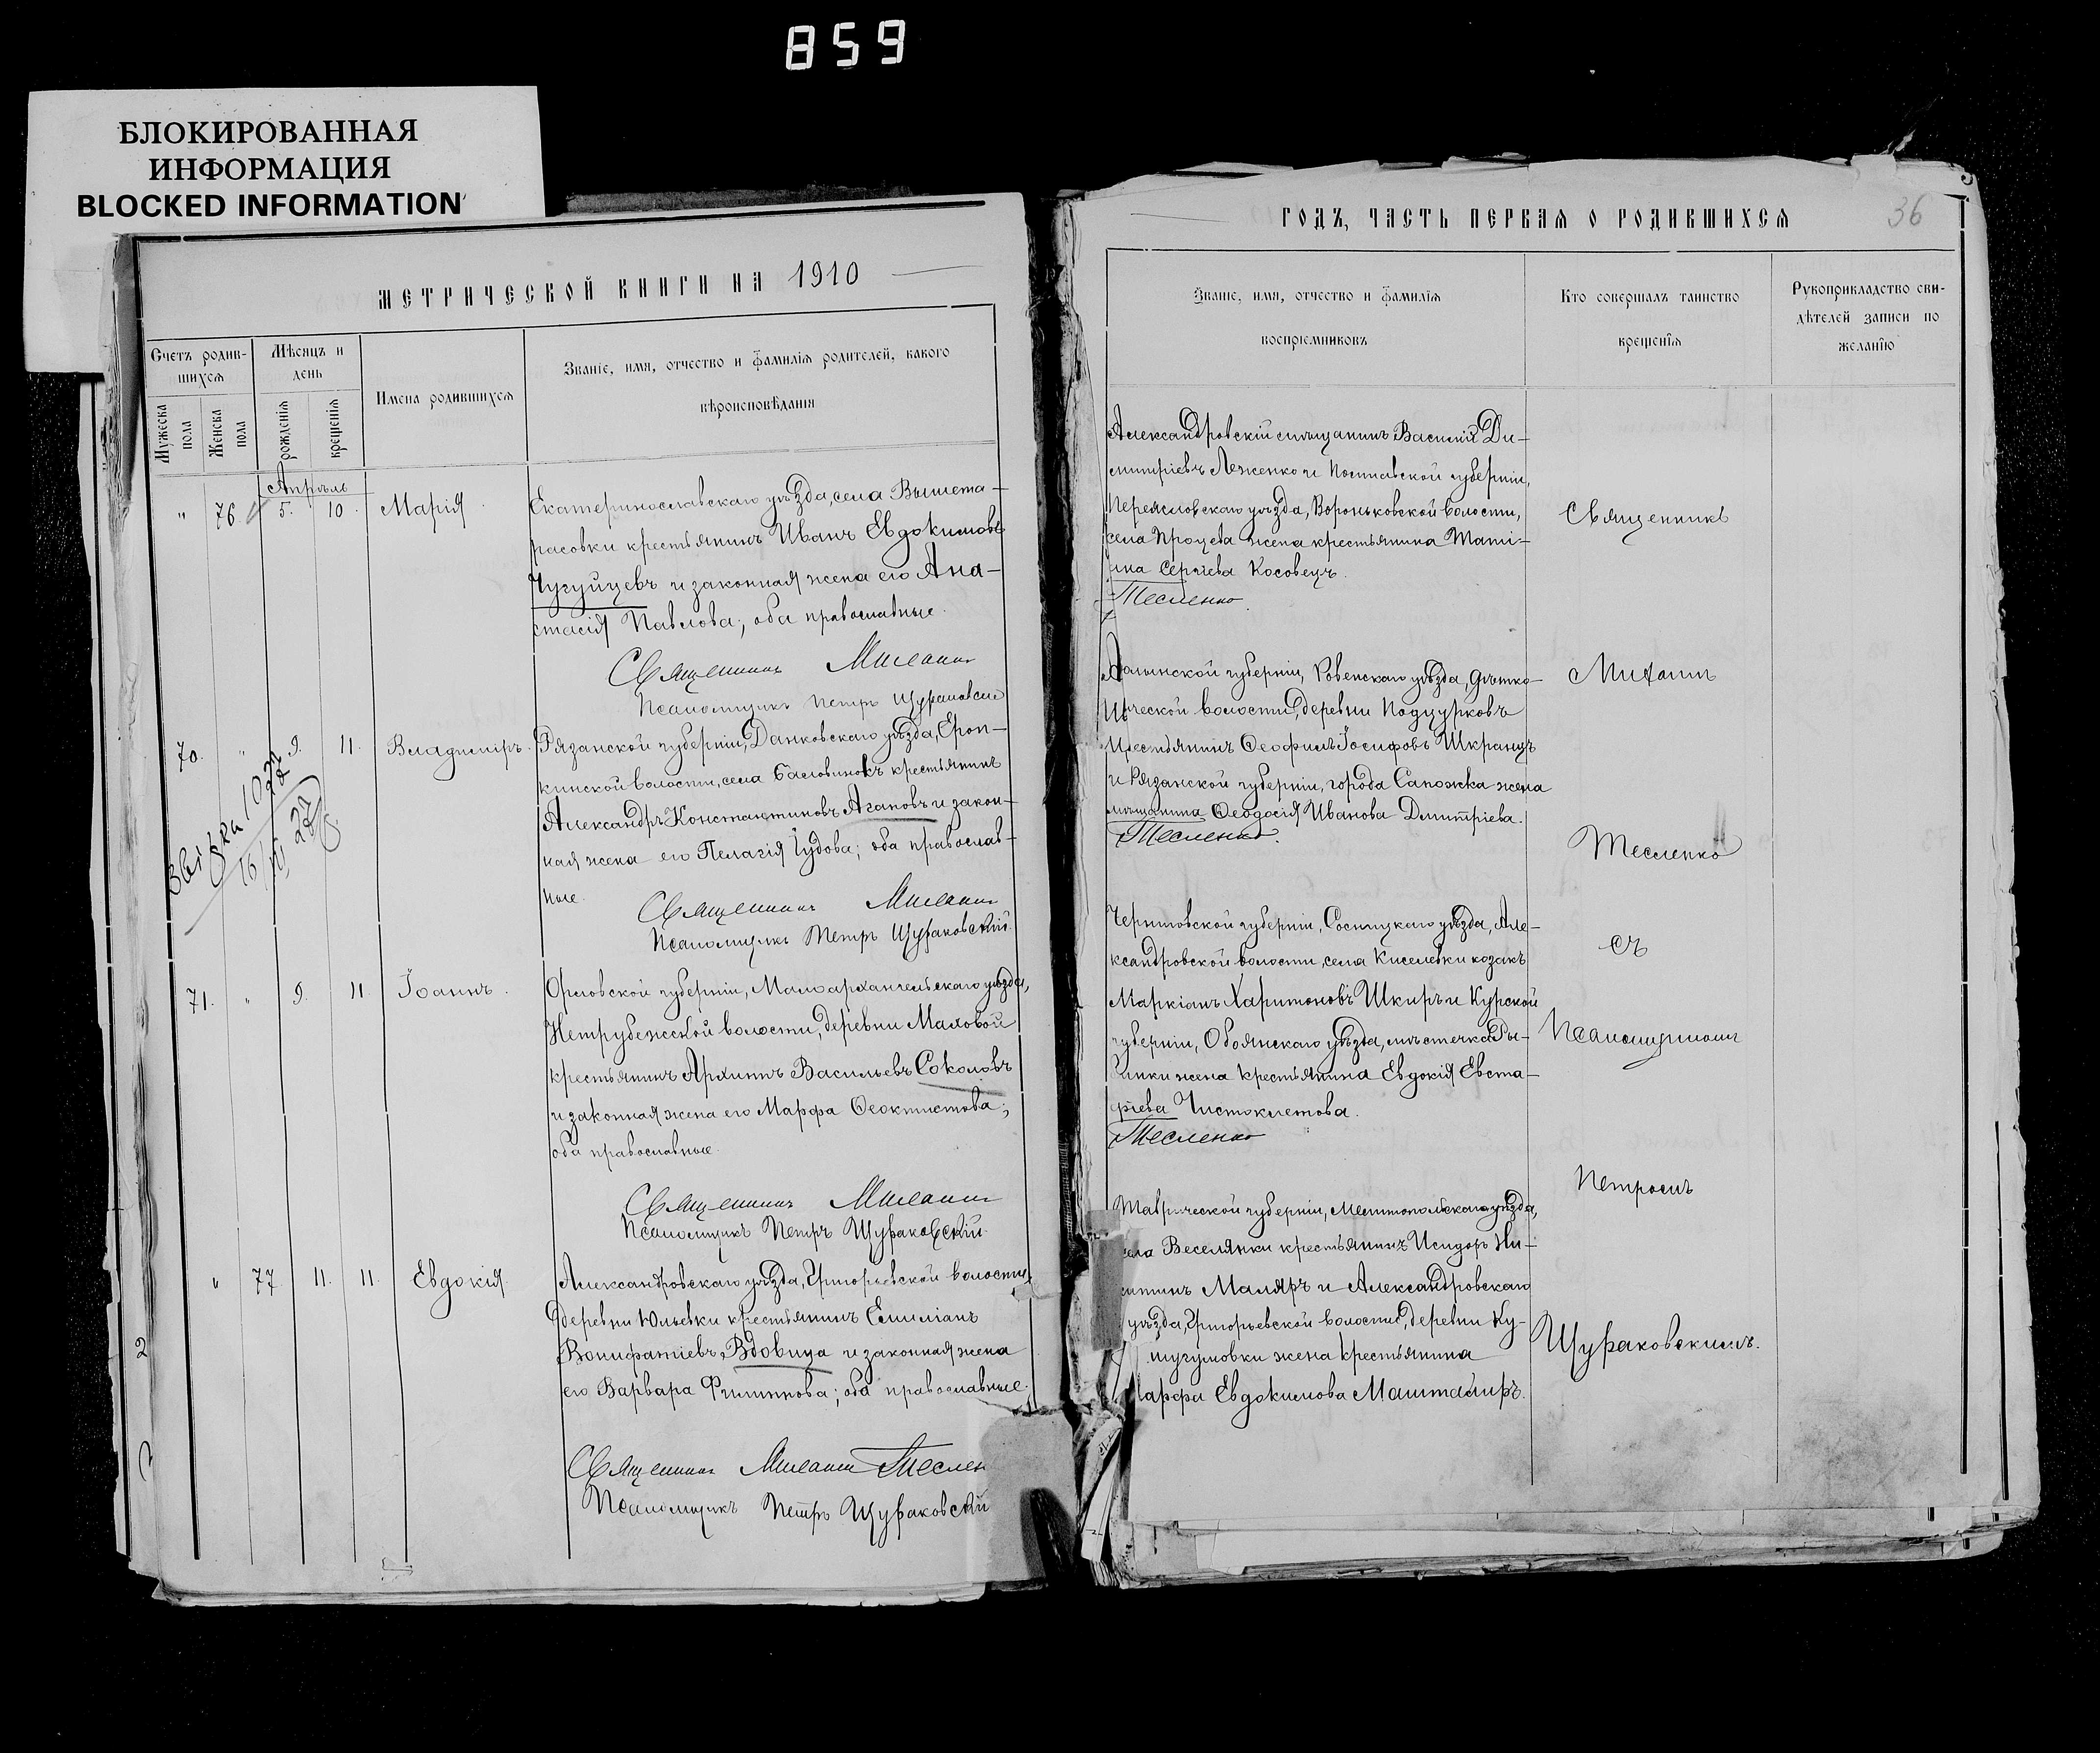 859
БЛОКИРОВАННАЯ
ИНФОРМАЦИЯ
BLOCKED INFORMATION
МЕТРИЧЕСКОЙ КНИГИ НА 1910
Счетъ родив-
шихся
Мѣсяцъ и
день
Мужеска пола
Женска пола
рожденія
крещенія
Имена родившихся
Званіе, имя, отчество и фамилія родителей, какого
вѣроисповѣданія
Апрѣль
" 76 5. 10. Марія
Екатеринославскаго уѣзда, села Вышета-
расовки крестьянинъ Иванъ Евдокимовъ
Чугуйцевъ и законная жена его Ана-
стасія Павлова; оба православные.
Священникъ Михаилъ
Псаломщикъ Петръ Щураковскій
70. " 9. 11. Владиміръ.
Рязанской губерніи, Данковскаго уѣзда, Ероп-
кинской волости, села крестьянинъ
Александръ Константиновъ Агаповъ и закон-
ная жена его Пелагія Іудова; оба православ-
ные.
Священникъ Михаилъ
Псаломщикъ Петръ Щураковскій.
71. " 9. 11. Іоаннъ.
Орловской губерніи, Малоархангельскаго уѣзда,
волости, деревни Маховой
крестьянинъ Архипъ Васильевъ Соколовъ
и законная жена его Марфа Ѳеоктистова;
оба православные.
Священникъ Михаилъ
Псаломщикъ Петръ Щураковскій
" 77 11. 11. Евдокія.
Александровскаго уѣзда, Григорьевской волости,
деревни Юльевки крестьянинъ Емиліанъ
Вонифатіевъ Вдовица и законная жена
его Варвара Филиппова; оба православные.
Священникъ Михаилъ Теслен
Псаломщикъ Петръ Щураковскій
ГОДЪ, ЧАСТЬ ПЕРВАЯ О РОДИВШИХСЯ
36
Званіе, имя, отчество и фамилія
воспріемниковъ
Кто совершалъ таинство
крещенія
Рукоприкладство сви-
дѣтелей записи по
желанію
Александровскій мѣщанинъ Василій Ди-
митріевъ Леженко и Полтавской губерніи,
Переяславскаго уѣзда, Вороньковской волости,
села Процева жена крестьянина Тати-
яна Сергіева Косовецъ.
Тесленко.
Волынской губерніи, Ровенскаго уѣзда,
волости, деревни Подцурковъ
крестьянинъ Ѳеофилъ Іосифовъ Шкранцъ
и Рязанской губерніи, города Сапожка жена
мѣщанина Ѳеодосія Иванова Дмитріева.
Тесленко.
Черниговской губерніи, Сосницкаго уѣзда, Але-
ксандровской волости, села Киселевки козакъ
Маркіанъ Харитоновъ Шкиръ и Курской
губерніи, Обоянскаго уѣзда, мѣстечка
жена крестьянина Евдокія Евста-
фіева Чистоклетова.
Тесленко
Таврической губерніи, Мелитопольскаго уѣзда,
села Веселянки крестьянинъ Исидоръ Ни-
китинъ Маляръ и Александровскаго
уѣзда, Григорьевской волости, деревни Ку-
шугумовки жена крестьянина
Марфа Евдокимова
Священникъ
Михаилъ
Тесленко
съ
Псаломщикомъ
Петромъ
Щураковскимъ.